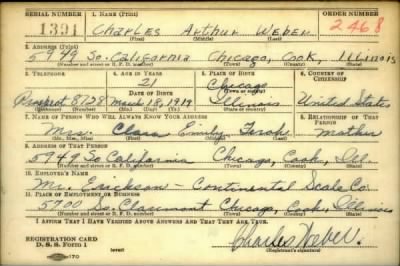 SERIAL NUMBER 1. NAME (Print) ORDER NUMBER
1391 Charles Arthur Weber 2468
(First) (Middle) (Last)
2. ADDRESS (Print)
5949 So. California Chicago, Cook, Illinois
(Number and street or R. F. D. number) (Town) (County) (State)
3. TELEPHONE 4. AGE IN YEARS 5. PLACE OF BIRTH 6. COUNTRY OF CITIZENSHIP
21 Chicago
DATE OF BIRTH (Town or county)
Prospect 8728 March 18, 1919 Illinois United States
(Exchange) (Number) (Mo.) (Day) (Yr.) (State or country)
7. NAME OF PERSON WHO WILL ALWAYS KNOW YOUR ADDRESS 8. RELATIONSHIP OF THAT PERSON
Mrs. Clara Emily Mother
(Mr., Mrs., Miss) (First) (Middle) (Last)
9. ADDRESS OF THAT PERSON
5949 So California Chicago, Cook, Ill.
(Number and street or R. F. D. number) (Town) (County) (State)
10. EMPLOYER'S NAME
Mr. Erickson - Continental Scale Co.
11. PLACE OF EMPLOYMENT OR BUSINESS
5700 So. Claremont Chicago, Cook, Illinois
(Number and street or R. F. D. number) (Town) (County) (State)
I AFFIRM THAT I HAVE VERIFIED ABOVE ANSWERS AND THAT THEY ARE TRUE.
REGISTRATION CARD
D. S. S. Form 1 (over) Charles Weber
(Registrant's signature)